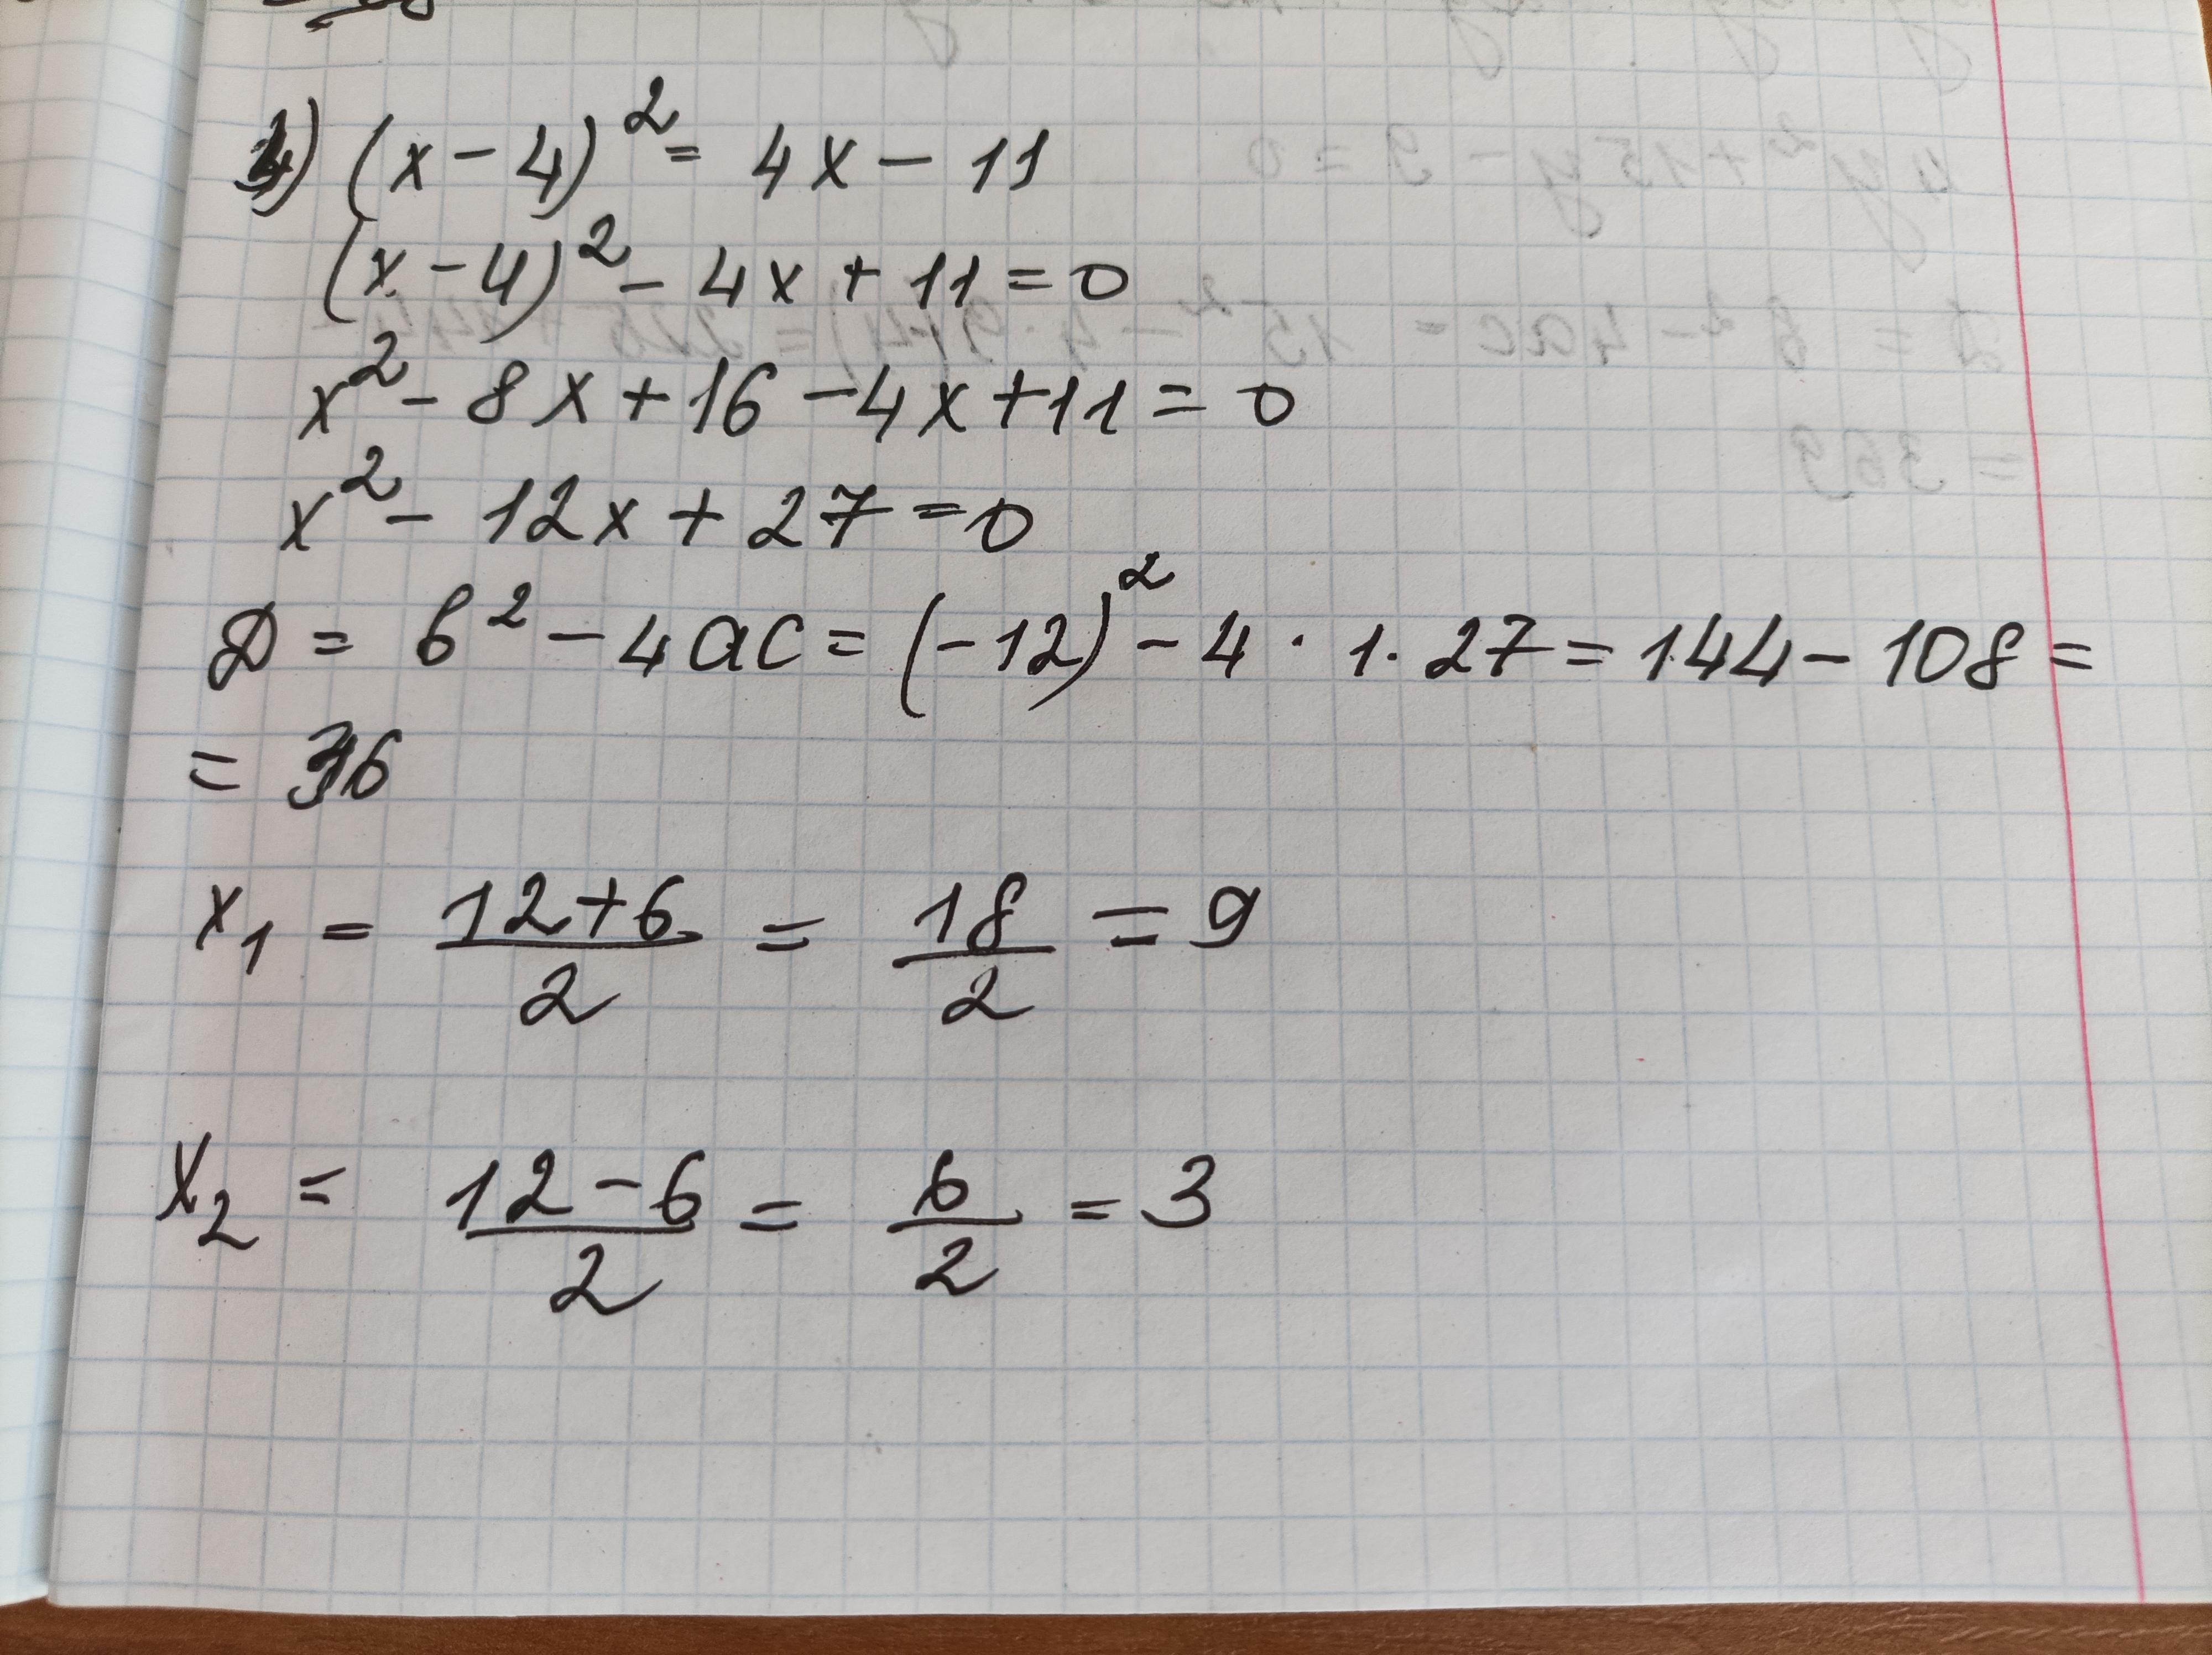 4) (x - 4)² = 4x - 11
(x - 4)² - 4x + 11 = 0
x² - 8x + 16 - 4x + 11 = 0
x² - 12x + 27 = 0
D = b² - 4ac = (-12)² - 4 · 1 · 27 = 144 - 108 =
= 36
x₁ = (12+6)/2 = 18/2 = 9
x₂ = (12-6)/2 = 6/2 = 3